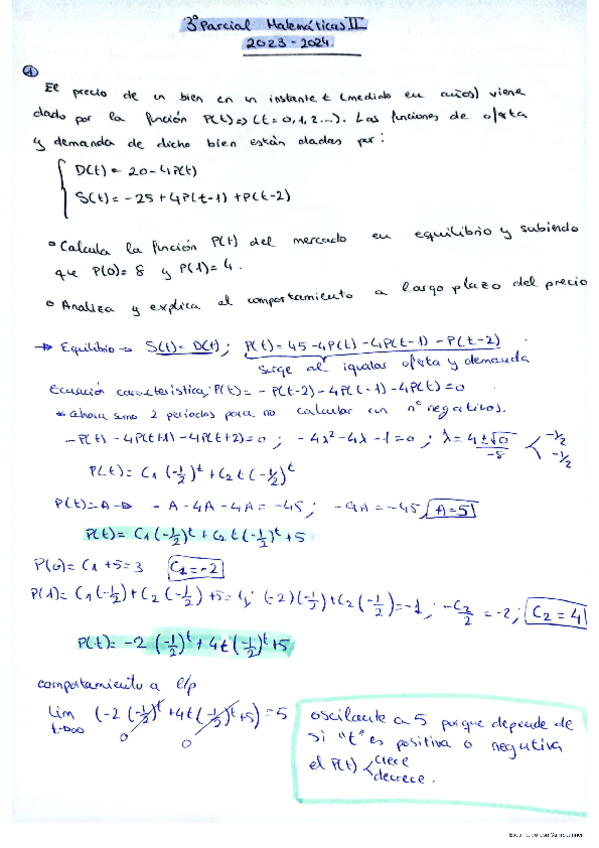 3º Parcial Matemáticas II
2023 - 2024
①
El precio de un bien en un instante t (medido en años) viene
dado por la función P(t) => (t = 0, 1, 2 ...). Las funciones de oferta
y demanda de dicho bien están dadas por:
D(t) = 20 - 4P(t)
S(t) = -25 + 4P(t-1) + P(t-2)
• Calcula la función P(t) del mercado en equilibrio y subiendo
que P(0) = 8 y P(1) = 4.
• Analiza y explica el comportamiento a largo plazo del precio
→ Equilibrio → S(t) = D(t); P(t) = 45 - 4P(t) - 4P(t-1) - P(t-2)
surge al igualar oferta y demanda
Ecuación característica; P(t) = -P(t-2) - 4P(t-1) - 4P(t) = 0
* ahora sumo 2 periodos para no calcular con nº negativos.
-P(t) - 4P(t+1) - 4P(t+2) = 0 ; -4λ² - 4λ - 1 = 0 ; λ = 4 ± √0 / -8 < -1/2
-1/2
P(t) = C1 (-1/2)^t + C2 t (-1/2)^t
P(t) = A → -A - 4A - 4A = -45 ; -9A = -45, A = 5
P(t) = C1 (-1/2)^t + C2 t (-1/2)^t + 5
P(0) = C1 + 5 = 3 C1 = -2
P(1) = C1 (-1/2) + C2 (-1/2) + 5 = 4; (-2)(-1/2) + C2 (-1/2) = -1 ; -C2/2 = -2, C2 = 4
P(t) = -2 (-1/2)^t + 4t (-1/2)^t + 5
comportamiento a l/p
lim (-2 (-1/2)^t + 4t (-1/2)^t + 5) = 5
t→∞
0
0
oscilante a 5 porque depende de
si "t" es positiva o negativa
el P(t) < crece
decrece.